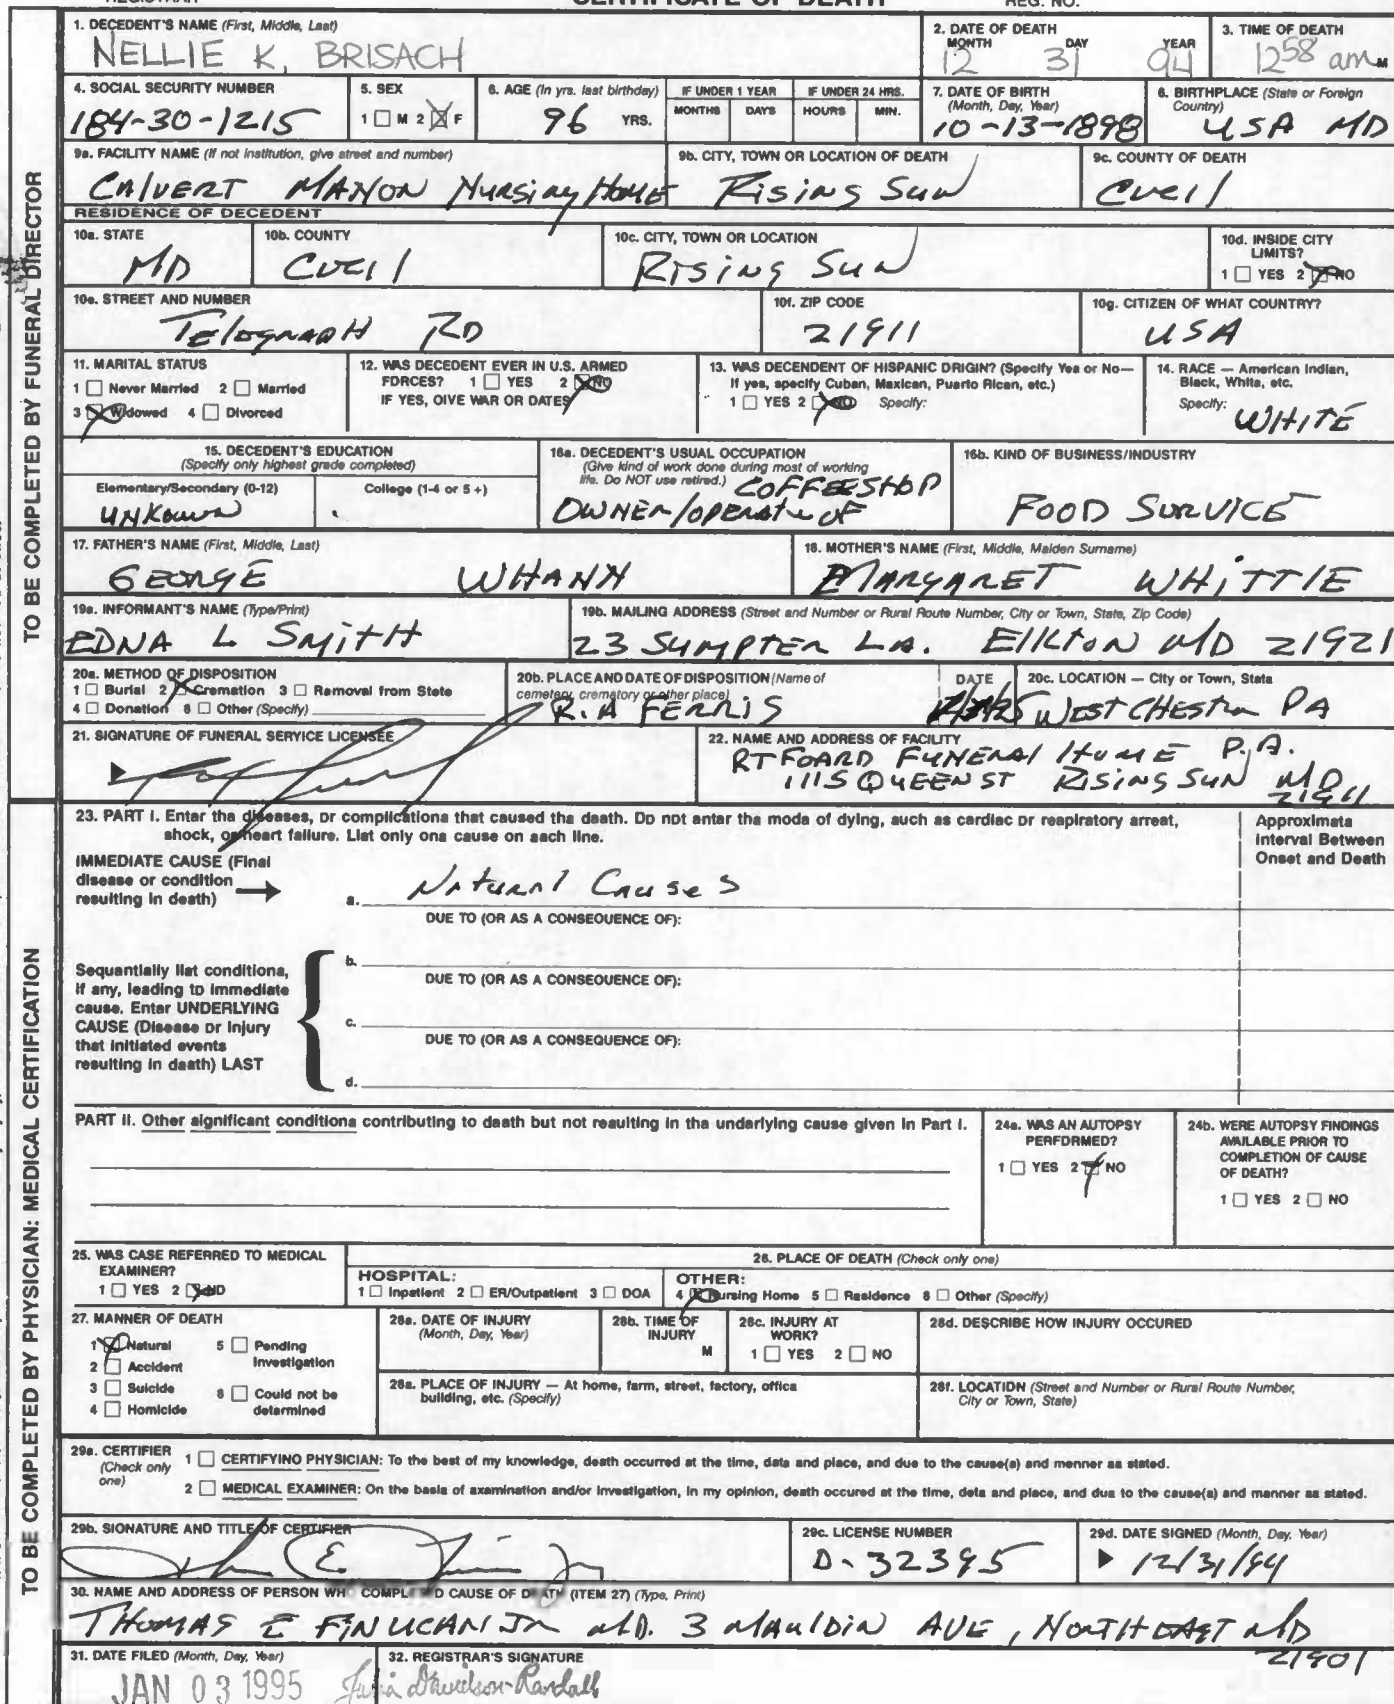 REGISTRAR CERTIFICATE OF DEATH REG. NO.
TO BE COMPLETED BY FUNERAL DIRECTOR
1. DECEDENT'S NAME (First, Middle, Last)
NELLIE K. BRISACH
2. DATE OF DEATH
MONTH DAY YEAR
12 31 94
3. TIME OF DEATH
12 58 am M
4. SOCIAL SECURITY NUMBER
184-30-1215
5. SEX
1 M 2 F
6. AGE (In yrs. last birthday)
96 YRS.
IF UNDER 1 YEAR
MONTHS DAYS
IF UNDER 24 HRS.
HOURS MIN.
7. DATE OF BIRTH
(Month, Day, Year)
10-13-1898
8. BIRTHPLACE (State or Foreign
Country)
USA MD
9a. FACILITY NAME (If not institution, give street and number)
CALVERT MANON NURSING HOME
9b. CITY, TOWN OR LOCATION OF DEATH
RISING SUN
9c. COUNTY OF DEATH
CECIL
RESIDENCE OF DECEDENT
10a. STATE
MD
10b. COUNTY
CECIL
10c. CITY, TOWN OR LOCATION
RISING SUN
10d. INSIDE CITY
LIMITS?
1 YES 2 NO
10e. STREET AND NUMBER
TELEGRAPH RD
10f. ZIP CODE
21911
10g. CITIZEN OF WHAT COUNTRY?
USA
11. MARITAL STATUS
1 Never Married 2 Married
3 Widowed 4 Divorced
12. WAS DECEDENT EVER IN U.S. ARMED
FORCES? 1 YES 2 NO
IF YES, GIVE WAR OR DATES
13. WAS DECENDENT OF HISPANIC ORIGIN? (Specify Yes or No—
If yes, specify Cuban, Mexican, Puerto Rican, etc.)
1 YES 2 NO Specify:
14. RACE — American Indian,
Black, White, etc.
Specify:
WHITE
15. DECEDENT'S EDUCATION
(Specify only highest grade completed)
Elementary/Secondary (0-12) College (1-4 or 5+)
UNKOWN
16a. DECEDENT'S USUAL OCCUPATION
(Give kind of work done during most of working
life. Do NOT use retired.) COFFEESHOP
OWNER/OPERATOR OF
16b. KIND OF BUSINESS/INDUSTRY
FOOD SURVICE
17. FATHER'S NAME (First, Middle, Last)
GEORGE WHANN
18. MOTHER'S NAME (First, Middle, Maiden Surname)
MARGARET WHITTLE
19a. INFORMANT'S NAME (Type/Print)
EDNA L SMITH
19b. MAILING ADDRESS (Street and Number or Rural Route Number, City or Town, State, Zip Code)
23 SUMPTER LA. ELKTON MD 21921
20a. METHOD OF DISPOSITION
1 Burial 2 Cremation 3 Removal from State
4 Donation 8 Other (Specify)
20b. PLACE AND DATE OF DISPOSITION (Name of
cemetery, crematory or other place)
R.A FERRIS
DATE
20c. LOCATION — City or Town, State
WEST CHESTER PA
21. SIGNATURE OF FUNERAL SERVICE LICENSEE
22. NAME AND ADDRESS OF FACILITY
RT FOARD FUNERAL HOME P.A.
111 S QUEEN ST RISING SUN MD
21911
TO BE COMPLETED BY PHYSICIAN: MEDICAL CERTIFICATION
23. PART I. Enter the diseases, or complications that caused the death. Do not enter the mode of dying, such as cardiac or respiratory arrest,
shock, or heart failure. List only one cause on each line.
Approximate
Interval Between
Onset and Death
IMMEDIATE CAUSE (Final
disease or condition
resulting in death)
a. Natural Causes
DUE TO (OR AS A CONSEQUENCE OF):
Sequentially list conditions,
if any, leading to immediate
cause. Enter UNDERLYING
CAUSE (Disease or injury
that initiated events
resulting in death) LAST
b.
DUE TO (OR AS A CONSEQUENCE OF):
c.
DUE TO (OR AS A CONSEQUENCE OF):
d.
PART II. Other significant conditions contributing to death but not resulting in the underlying cause given in Part I.
24a. WAS AN AUTOPSY
PERFORMED?
1 YES 2 NO
24b. WERE AUTOPSY FINDINGS
AVAILABLE PRIOR TO
COMPLETION OF CAUSE
OF DEATH?
1 YES 2 NO
25. WAS CASE REFERRED TO MEDICAL
EXAMINER?
1 YES 2 NO
26. PLACE OF DEATH (Check only one)
HOSPITAL:
1 Inpatient 2 ER/Outpatient 3 DOA
OTHER:
4 Nursing Home 5 Residence 6 Other (Specify)
27. MANNER OF DEATH
1 Natural 5 Pending
2 Accident Investigation
3 Suicide 8 Could not be
4 Homicide determined
28a. DATE OF INJURY
(Month, Day, Year)
28b. TIME OF
INJURY
M
28c. INJURY AT
WORK?
1 YES 2 NO
28d. DESCRIBE HOW INJURY OCCURED
28e. PLACE OF INJURY — At home, farm, street, factory, office
building, etc. (Specify)
28f. LOCATION (Street and Number or Rural Route Number,
City or Town, State)
29a. CERTIFIER
(Check only
one)
1 CERTIFYING PHYSICIAN: To the best of my knowledge, death occurred at the time, date and place, and due to the cause(s) and manner as stated.
2 MEDICAL EXAMINER: On the basis of examination and/or investigation, in my opinion, death occured at the time, date and place, and due to the cause(s) and manner as stated.
29b. SIGNATURE AND TITLE OF CERTIFIER
29c. LICENSE NUMBER
D-32395
29d. DATE SIGNED (Month, Day, Year)
12/31/94
30. NAME AND ADDRESS OF PERSON WHO COMPLETED CAUSE OF DEATH (ITEM 27) (Type, Print)
THOMAS E FINUCAN JR MD. 3 MAULDIN AVE, NORTH EAST MD
21901
31. DATE FILED (Month, Day, Year)
JAN 03 1995
32. REGISTRAR'S SIGNATURE
Julia Davidson-Randall